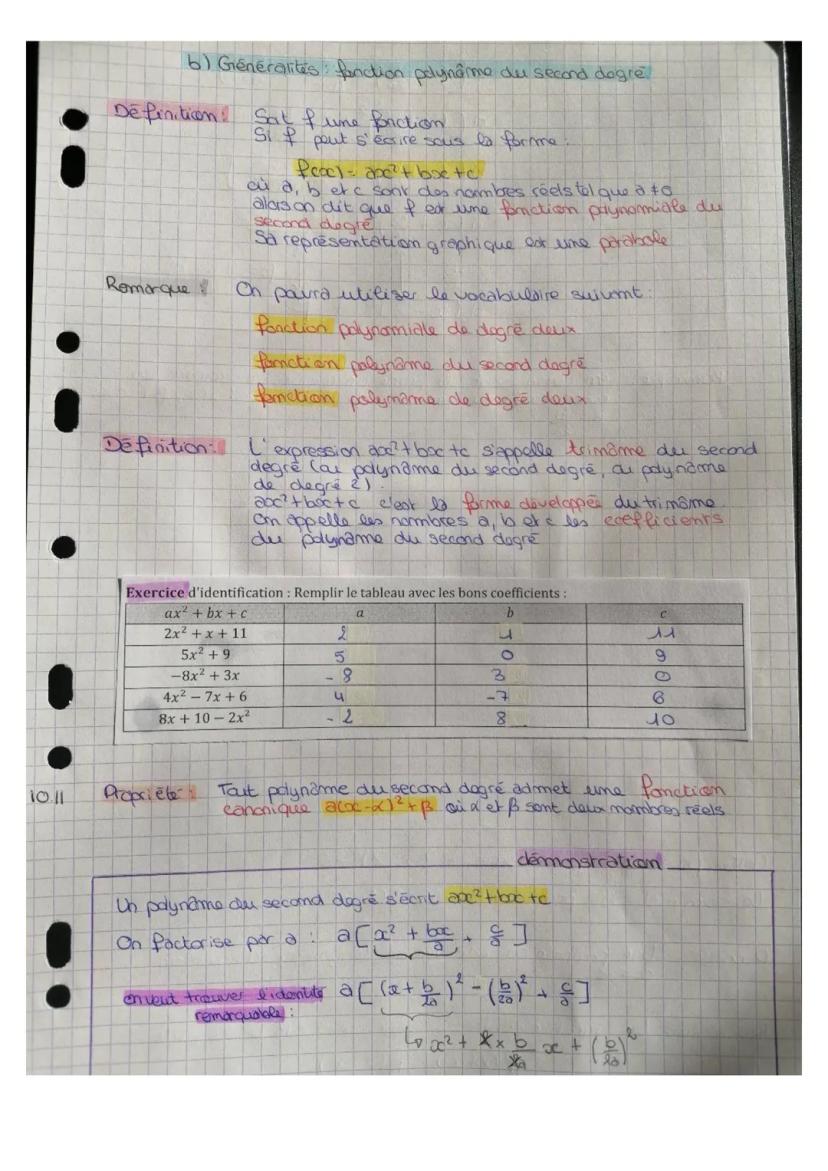 b) Généralités : fonction polynôme du second degré
Définition : Soit f une fonction
Si f peut s'écrire sous la forme :
f(x) = ax² + bx + c
où a, b et c sont des nombres réels tel que a ≠ 0
alors on dit que f est une fonction polynomiale du
second degré
Sa représentation graphique est une parabole
Remarque : On pourra utiliser le vocabulaire suivant :
fonction polynomiale de degré deux
fonction polynôme du second degré
fonction polynôme de degré deux
Définition : L'expression ax² + bx + c s'appelle trinôme du second
degré (ou polynôme du second degré, ou polynôme
de degré 2).
ax² + bx + c c'est la forme développée du trinôme
On appelle les nombres a, b et c les coefficients
du polynôme du second degré
Exercice d'identification : Remplir le tableau avec les bons coefficients :
ax² + bx + c a b c
2x² + x + 11 2 1 11
5x² + 9 5 0 9
−8x² + 3x -8 3 0
4x² − 7x + 6 4 -7 6
8x + 10 − 2x² -2 8 10
10.11 Propriété : Tout polynôme du second degré admet une fonction
canonique a(x-α)² + β où α et β sont deux nombres réels
démonstration
Un polynôme du second degré s'écrit ax² + bx + c
On factorise par a : a[x² + bx/a + c/a]
on veut trouver l'identité a[(x + b/2a)² - (b/2a)² + c/a]
remarquable :
↳ x² + 2 × b/2a x + (b/2a)²